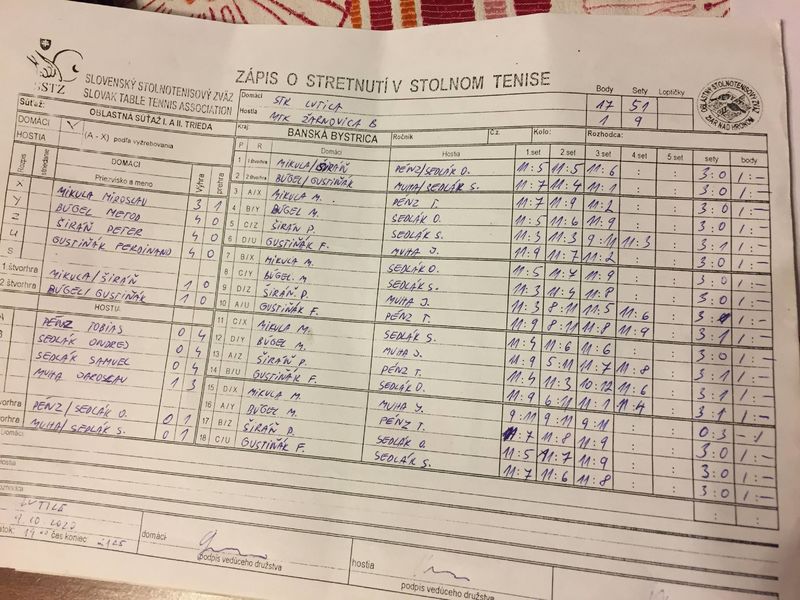 SSTZ
SLOVENSKÝ STOLNOTENISOVÝ ZVÄZ
SLOVAK TABLE TENNIS ASSOCIATION
ZÁPIS O STRETNUTÍ V STOLNOM TENISE
Domáci STK LUTILA
Hostia MTK ŽARNOVICA B
Body Sety Loptičky
17 51
1 9
Súťaž: OBLASTNÁ SÚŤAŽ I. A II. TRIEDA
Kraj: BANSKÁ BYSTRICA Ročník Č.z. Kolo: Rozhodca:
DOMÁCI (A - X) podľa vyžrebovania
HOSTIA
Rozpis DOMÁCI Výhra prehra
Priezvisko a meno
X MIKULA MIROSLAV 3 1
Y BÚGEL METOD 4 0
Z ŠIRÁŇ PETER 4 0
U GUSTIŇÁK FERDINAND 4 0
S
1 štvorhra MIKULA/ŠIRÁŇ 1 0
2 štvorhra BÚGEL/GUSTIŇÁK 1 0
HOSTIA
PÉNZ TOBIAS 0 4
SEDLÁK ONDREJ 0 4
SEDLÁK SAMUEL 0 4
MUHA JAROSLAV 1 3
PÉNZ/SEDLÁK O. 0 1
MUHA/SEDLÁK S. 0 1
P R Domáci Hostia 1 set 2 set 3 set 4 set 5 set sety body
1 1 štvorhra MIKULA/ŠIRÁŇ PÉNZ/SEDLÁK O. 11:5 11:5 11:6 : : 3:0 1:-
2 2 štvorhra BÚGEL/GUSTIŇÁK MUHA/SEDLÁK S. 11:7 11:4 11:1 : : 3:0 1:-
3 A/X MIKULA M. PÉNZ T. 11:7 11:9 11:2 : : 3:0 1:-
4 B/Y BÚGEL M. SEDLÁK O. 11:5 11:6 11:9 : : 3:0 1:-
5 C/Z ŠIRÁŇ P. SEDLÁK S. 11:3 11:3 9:11 11:3 : 3:1 1:-
6 D/U GUSTIŇÁK F. MUHA J. 11:9 11:7 11:2 : : 3:0 1:-
7 B/X MIKULA M. SEDLÁK O. 11:5 11:7 11:9 : : 3:0 1:-
8 C/Y BÚGEL M. SEDLÁK S. 11:3 11:4 11:8 : : 3:0 1:-
9 D/Z ŠIRÁŇ P. MUHA J. 11:3 8:11 11:5 11:6 : 3:1 1:-
10 A/U GUSTIŇÁK F. PÉNZ T. 11:9 8:11 11:8 11:9 : 3:1 1:-
11 C/X MIKULA M. SEDLÁK S. 11:4 11:6 11:6 : : 3:0 1:-
12 D/Y BÚGEL M. MUHA J. 11:9 5:11 11:7 11:8 : 3:1 1:-
13 A/Z ŠIRÁŇ P. PÉNZ T. 11:4 11:3 10:12 11:6 : 3:1 1:-
14 B/U GUSTIŇÁK F. SEDLÁK O. 11:9 6:11 11:1 11:4 : 3:1 1:-
15 D/X MIKULA M. MUHA J. 9:11 9:11 9:11 : : 0:3 -:1
16 A/Y BÚGEL M. PÉNZ T. 11:7 11:8 11:9 : : 3:0 1:-
17 B/Z ŠIRÁŇ P. SEDLÁK O. 11:5 11:7 11:9 : : 3:0 1:-
18 C/U GUSTIŇÁK F. SEDLÁK S. 11:7 11:6 11:8 : : 3:0 1:-
Domáci
Hostia
čas koniec
domáci
podpis vedúceho družstva
hostia
podpis vedúceho družstva